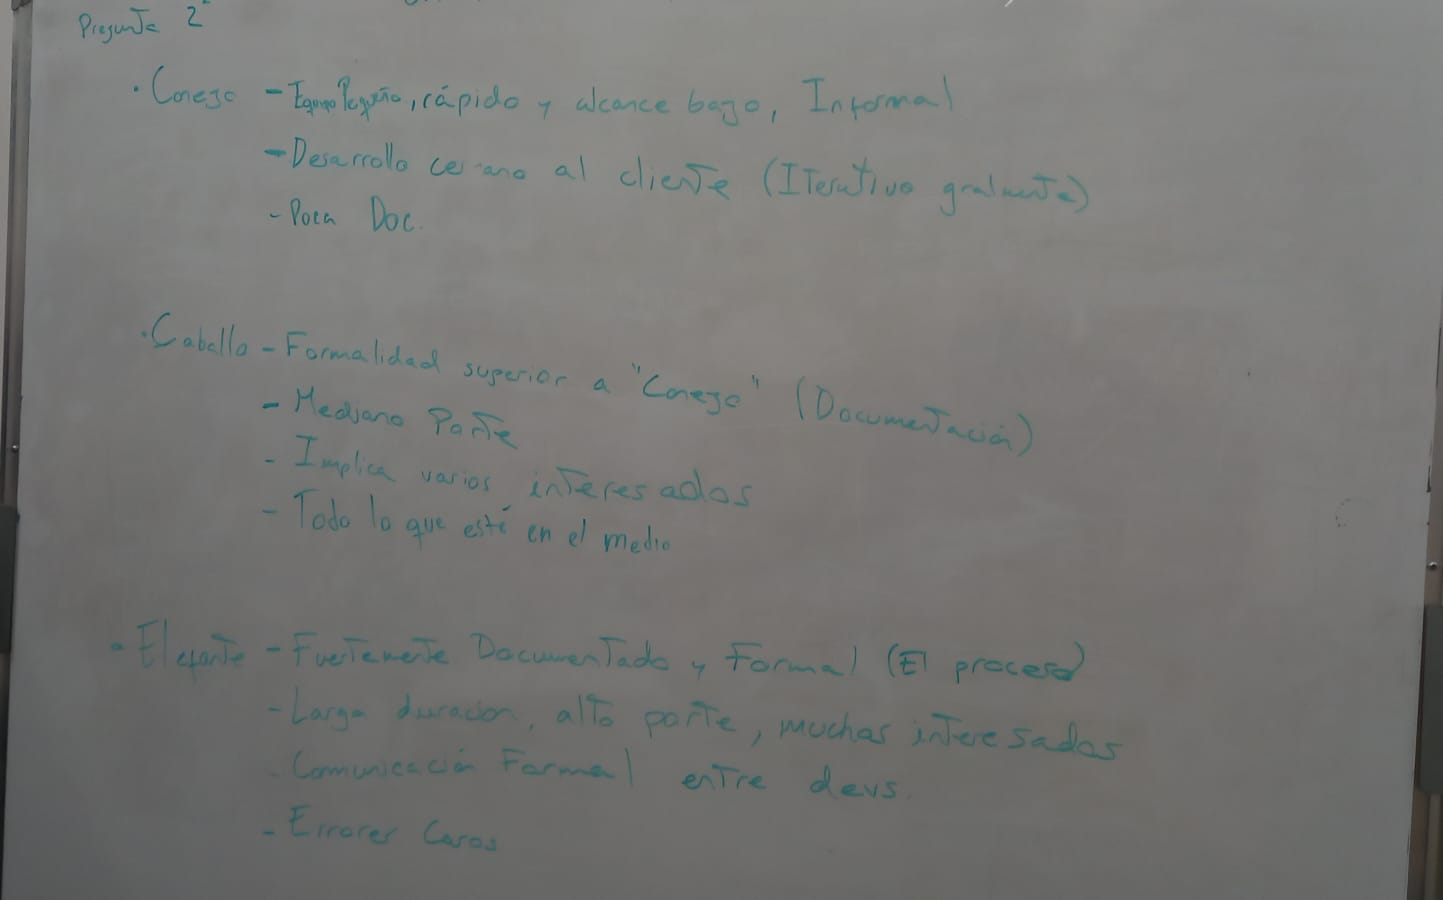 Pregunta 2
· Conejo - Equipo Pequeño, rápido y alcance bajo, Informal
- Desarrollo cercano al cliente (Iterativo gralmente)
- Poca Doc.
· Caballo - Formalidad superior a "Conejo" (Documentación)
- Mediano Porte
- Implica varios interesados
- Todo lo que esté en el medio
· Elefante - Fuertemente Documentado y Formal (El proceso)
- Larga duración, alto porte, muchos interesados
- Comunicación Formal entre devs.
- Errores Caros